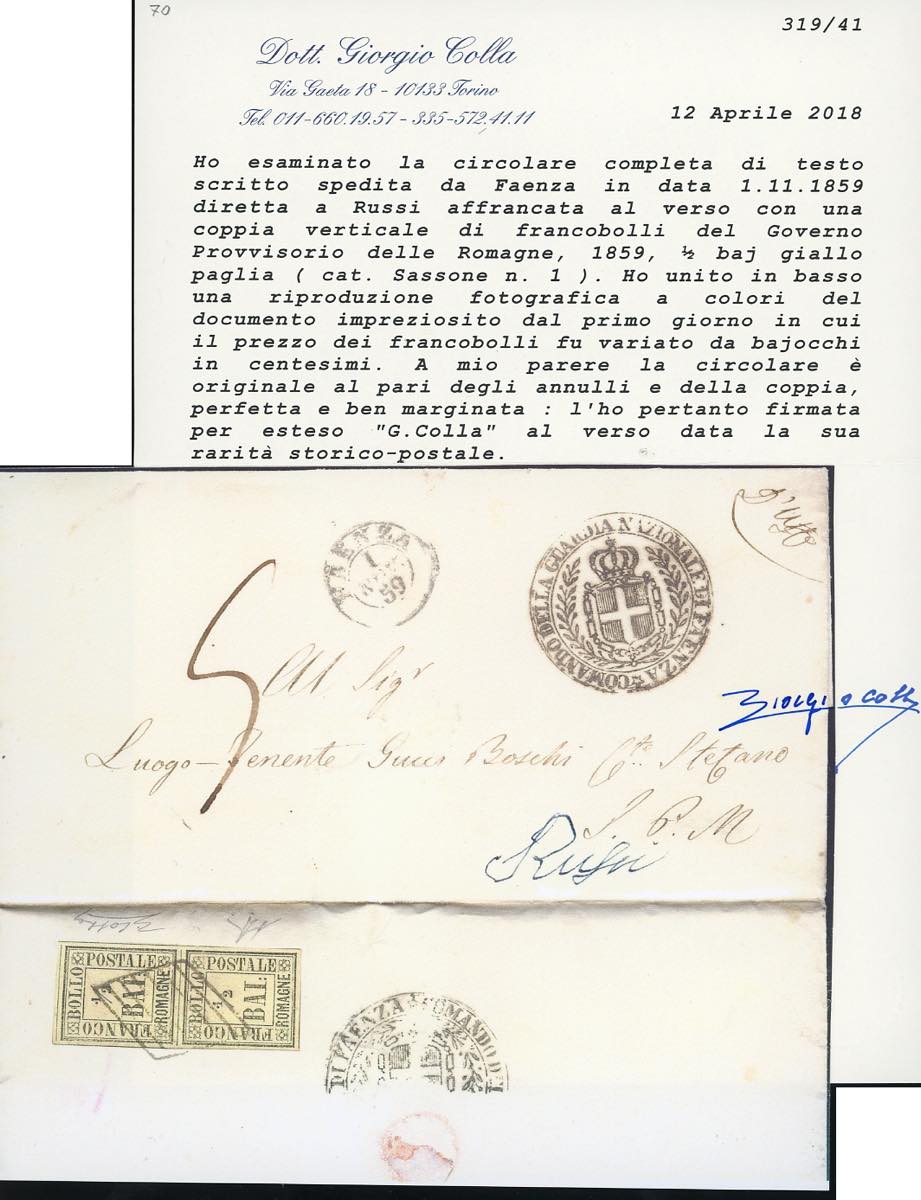 70
319/41
Dott. Giorgio Colla
Via Gaeta 18 - 10133 Torino
Tel. 011-660.19.57 - 335-572.41.11
12 Aprile 2018
Ho esaminato la circolare completa di testo
scritto spedita da Faenza in data 1.11.1859
diretta a Russi affrancata al verso con una
coppia verticale di francobolli del Governo
Provvisorio delle Romagne, 1859, ½ baj giallo
paglia ( cat. Sassone n. 1 ). Ho unito in basso
una riproduzione fotografica a colori del
documento impreziosito dal primo giorno in cui
il prezzo dei francobolli fu variato da bajocchi
in centesimi. A mio parere la circolare è
originale al pari degli annulli e della coppia,
perfetta e ben marginata : l'ho pertanto firmata
per esteso "G.Colla" al verso data la sua
rarità storico-postale.
FAENZA
1
59
COMANDO DELLA GUARDIA NAZIONALE DI FAENZA
5
All Sigr
Luogo-Tenente Gucci Boschi Cte. Stefano
S. P. M
Russi
Giorgio Colla
BOLLO POSTALE
FRANCO ROMAGNE
1/2
BAI:
BOLLO POSTALE
FRANCO ROMAGNE
1/2
BAI:
DI FAENZA COMANDO DEL